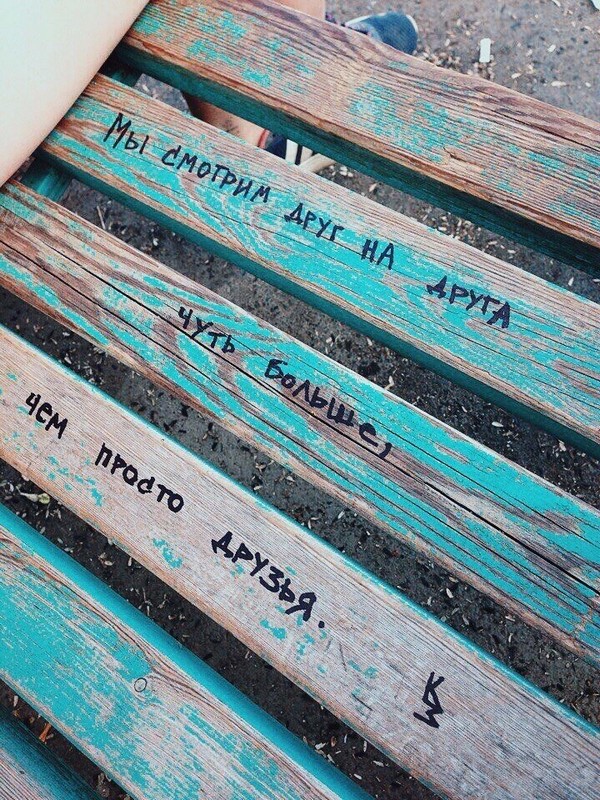 Мы смотрим друг на друга
чуть больше,
чем просто друзья.